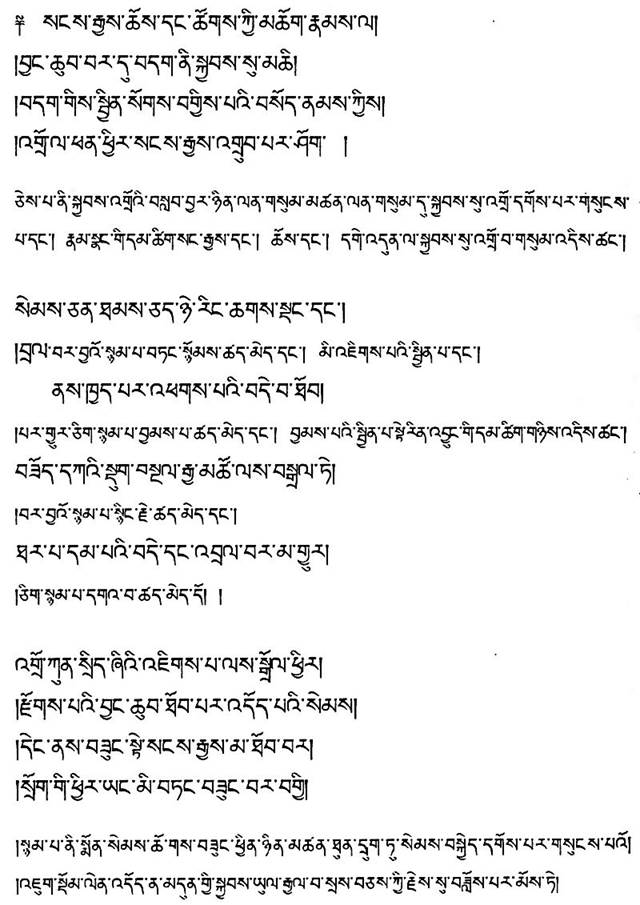 ༈ སངས་རྒྱས་ཆོས་དང་ཚོགས་ཀྱི་མཆོག་རྣམས་ལ།
།བྱང་ཆུབ་བར་དུ་བདག་ནི་སྐྱབས་སུ་མཆི།
།བདག་གིས་སྦྱིན་སོགས་བགྱིས་པའི་བསོད་ནམས་ཀྱིས།
།འགྲོ་ལ་ཕན་ཕྱིར་སངས་རྒྱས་འགྲུབ་པར་ཤོག །
ཅེས་པ་ནི་སྐྱབས་འགྲོའི་བསླབ་བྱར་ཉིན་ལན་གསུམ་མཚན་ལན་གསུམ་དུ་སྐྱབས་སུ་འགྲོ་དགོས་པར་གསུངས་
པ་དང་། རྣམ་སྣང་གི་དམ་ཚིག་སང་རྒྱས་དང་། ཆོས་དང་། དགེ་འདུན་ལ་སྐྱབས་སུ་འགྲོ་བ་གསུམ་འདིས་ཚང་།
སེམས་ཅན་ཐམས་ཅད་ཉེ་རིང་ཆགས་སྡང་དང་།
།བྲལ་བར་བྱའོ་སྙམ་པ་བཏང་སྙོམས་ཚད་མེད་དང་། མི་འཇིགས་པའི་སྦྱིན་པ་དང་།
ནས་ཁྱད་པར་འཕགས་པའི་བདེ་བ་ཐོབ།
།པར་གྱུར་ཅིག་སྙམ་པ་བྱམས་པ་ཚད་མེད་དང་། བྱམས་པའི་སྦྱིན་པ་སྟེ་རིན་འབྱུང་གི་དམ་ཚིག་གཉིས་འདིས་ཚང་།
བཟོད་དཀའི་སྡུག་བསྔལ་རྒྱ་མཚོ་ལས་བསྒྲལ་ཏེ།
།བར་བྱའོ་སྙམ་པ་སྙིང་རྗེ་ཚད་མེད་དང་།
ཐར་པ་དམ་པའི་བདེ་དང་འབྲལ་བར་མ་གྱུར།
།ཅིག་སྙམ་པ་དགའ་བ་ཚད་མེད་དོ། །
འགྲོ་ཀུན་སྲིད་ཞིའི་འཇིགས་པ་ལས་སྒྲོལ་ཕྱིར།
།རྫོགས་པའི་བྱང་ཆུབ་ཐོབ་པར་འདོད་པའི་སེམས།
།དེང་ནས་བཟུང་སྟེ་སངས་རྒྱས་མ་ཐོབ་བར།
།སྲོག་གི་ཕྱིར་ཡང་མི་བཏང་བཟུང་བར་བགྱི།
།སྙམ་པ་ནི་སྨོན་སེམས་ཆོ་གས་བཟུང་ཕྱིན་ཉིན་མཚན་ཐུན་དྲུག་ཏུ་སེམས་བསྐྱེད་དགོས་པར་གསུངས་པའོ།
།འཇུག་སྡོམ་ལེན་འདོད་ན་མདུན་གྱི་སྐྱབས་ཡུལ་རྒྱལ་བ་སྲས་བཅས་ཀྱི་རྗེས་སུ་བཟློས་པར་མོས་ཏེ།